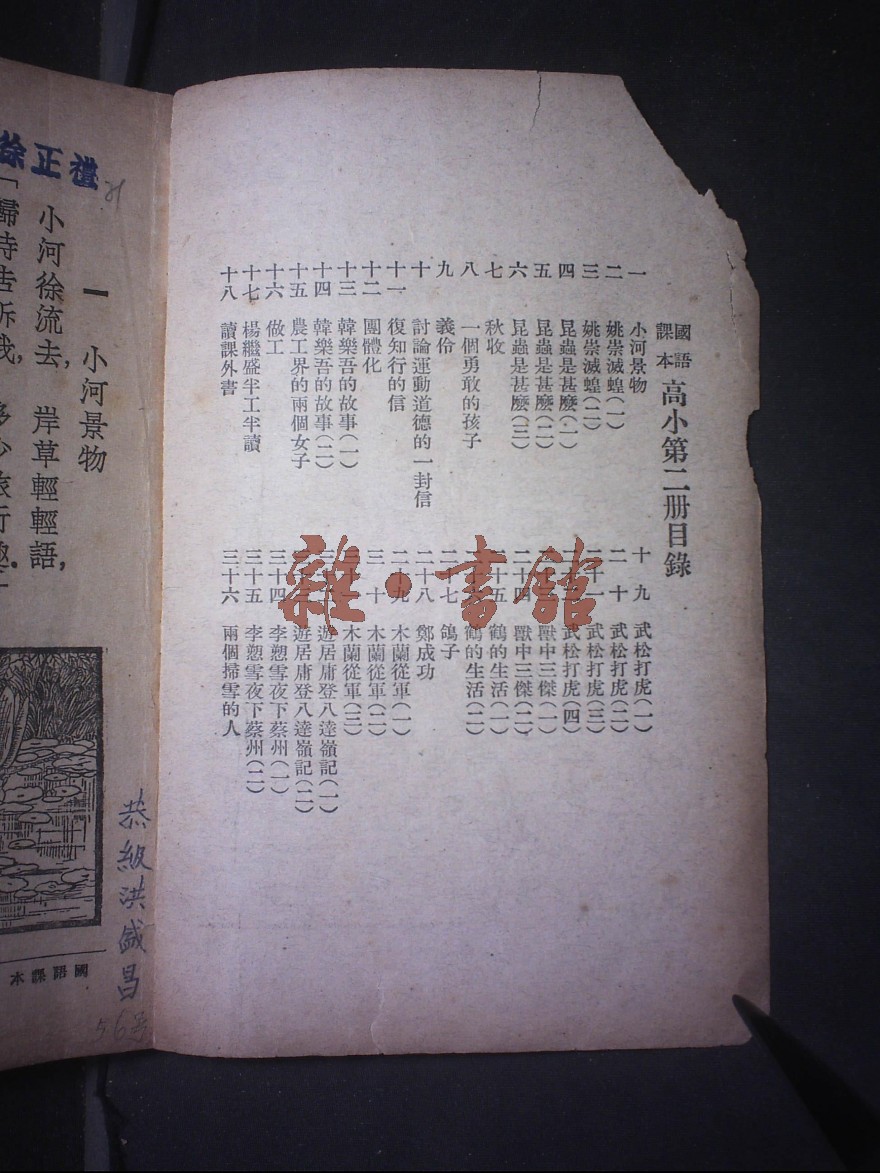 國語課本 高小第二册目錄
一 小河景物
二 姚崇滅蝗（一）
三 姚崇滅蝗（二）
四 昆蟲是甚麼（一）
五 昆蟲是甚麼（二）
六 昆蟲是甚麼（三）
七 秋收
八 一個勇敢的孩子
九 義伶
十 討論運動道德的一封信
十一 復知行的信
十二 團體化
十三 韓樂吾的故事（一）
十四 韓樂吾的故事（二）
十五 農工界的兩個女子
十六 做工
十七 楊繼盛半工半讀
十八 讀課外書
十九 武松打虎（一）
二十 武松打虎（二）
二十一 武松打虎（三）
武松打虎（四）
獸中三傑（一）
二十四 獸中三傑（二）
二十五 鶴的生活（一）
鶴的生活（二）
二十七 鴿子
二十八 鄭成功
二十九 木蘭從軍（一）
三十 木蘭從軍（二）
三十一 木蘭從軍（三）
遊居庸登八達嶺記（一）
遊居庸登八達嶺記（二）
三十四 李愬雪夜下蔡州（一）
三十五 李愬雪夜下蔡州（二）
三十六 兩個掃雪的人
雜·書館
徐正禮
恭級洪盛昌
56
一 小河景物
小河徐流去，岸草輕輕語，
「歸時告訴我，多少旅行趣。」
國語課本